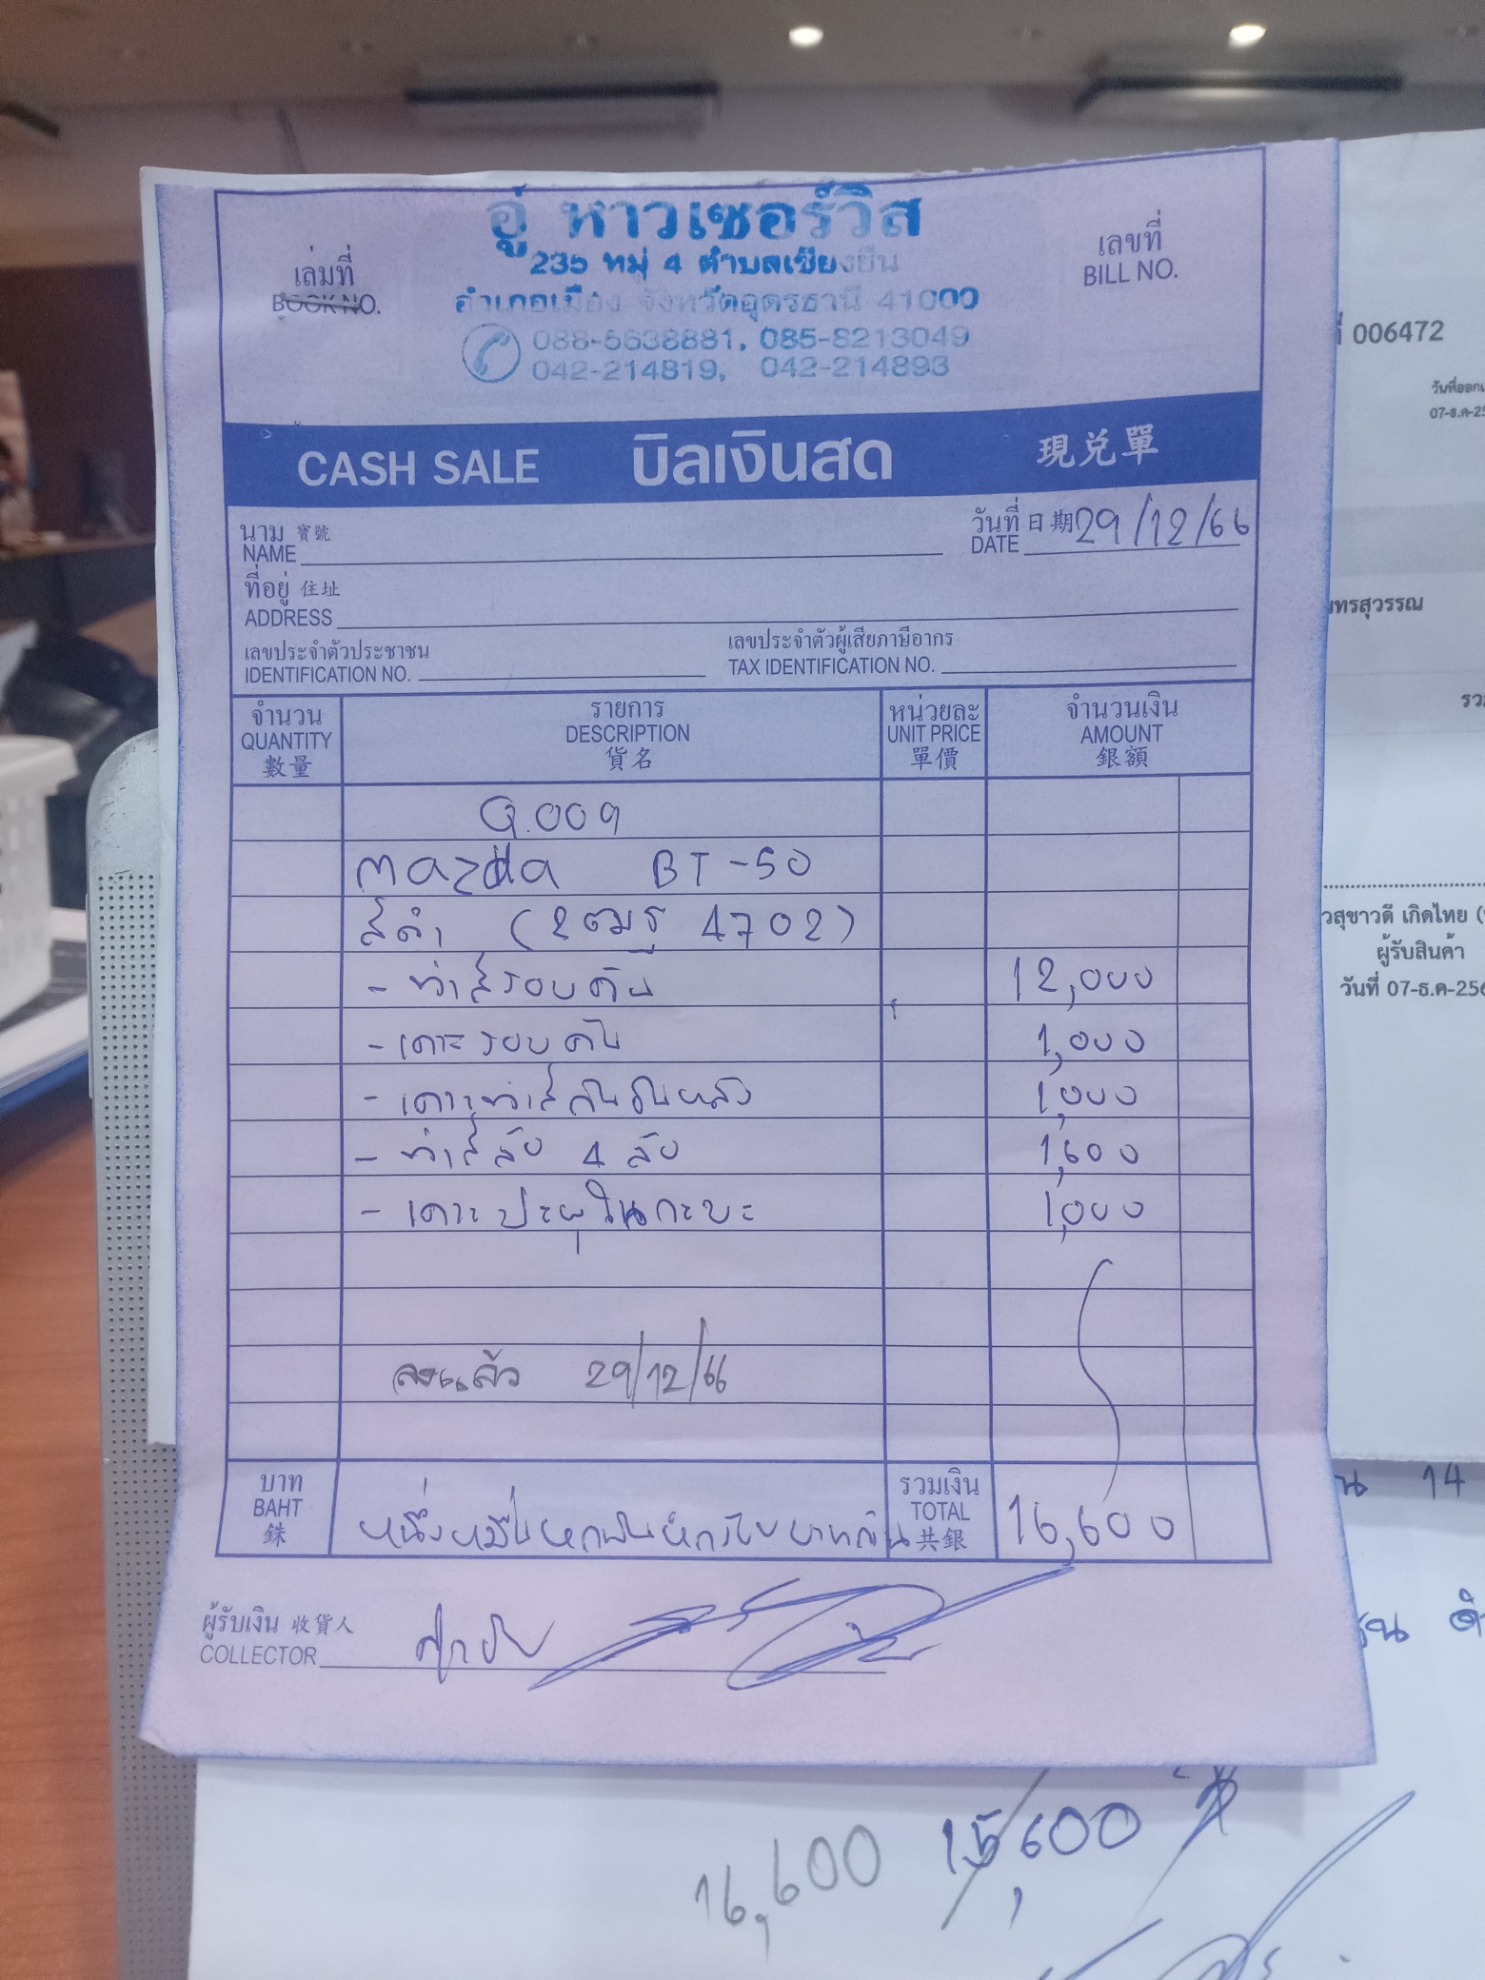 อู่ หาวเซอร์วิส
235 หมู่ 4 ตำบลเชียงยืน
อำเภอเมือง จังหวัดอุดรธานี 41000
088-5638881, 085-8213049
042-214819, 042-214893
เล่มที่
BOOK NO.
เลขที่
BILL NO.
CASH SALE บิลเงินสด 現兑單
นาม 寳號
NAME
วันที่ 日期 29/12/66
DATE
ที่อยู่ 住址
ADDRESS
เลขประจำตัวประชาชน
IDENTIFICATION NO.
เลขประจำตัวผู้เสียภาษีอากร
TAX IDENTIFICATION NO.
จำนวน รายการ หน่วยละ จำนวนเงิน
QUANTITY DESCRIPTION UNIT PRICE AMOUNT
數量 貨名 單價 銀額
Q.009
mazda BT-50
สีดำ (2ฒฐ 4702)
- ทำสีรอบคัน 12,000
- เคาะรอบคัน 1,000
- เคาะทำสีกันชนหลัง 1,000
- ทำสีล้อ 4 ล้อ 1,600
- เคาะปะผุในกะบะ 1,000
ลงแล้ว 29/12/66
บาท
BAHT
銖
หนึ่งหมื่นหกพันหกร้อยบาทถ้วน
รวมเงิน
TOTAL
共銀
16,600
ผู้รับเงิน 收貨人
COLLECTOR
ที่ 006472
07-ธ.ค-25
นทรสุวรรณ
วสุชาวดี เกิดไทย
ผู้รับสินค้า
วันที่ 07-ธ.ค-256
น 14
16,600 15,600